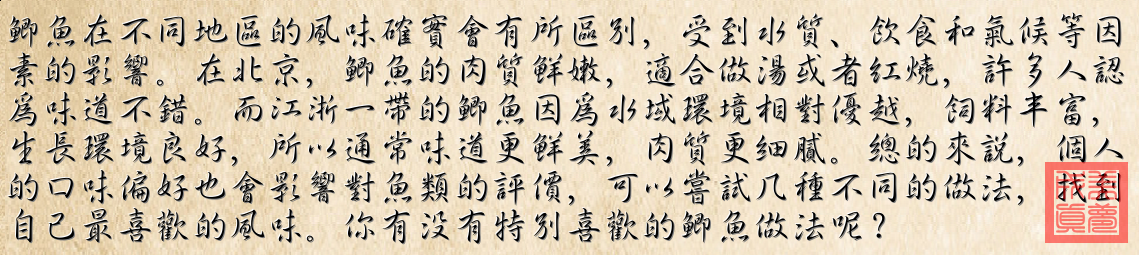 鯽魚在不同地區的風味確實會有所區別，受到水質、飲食和氣候等因
素的影響。在北京，鯽魚的肉質鮮嫩，適合做湯或者紅燒，許多人認
爲味道不錯。而江浙一帶的鯽魚因爲水域環境相對優越，飼料丰富，
生長環境良好，所以通常味道更鮮美，肉質更細膩。總的來説，個人
的口味偏好也會影響對魚類的評價，可以嘗試几種不同的做法，找到
自己最喜歡的風味。你有没有特別喜歡的鯽魚做法呢？